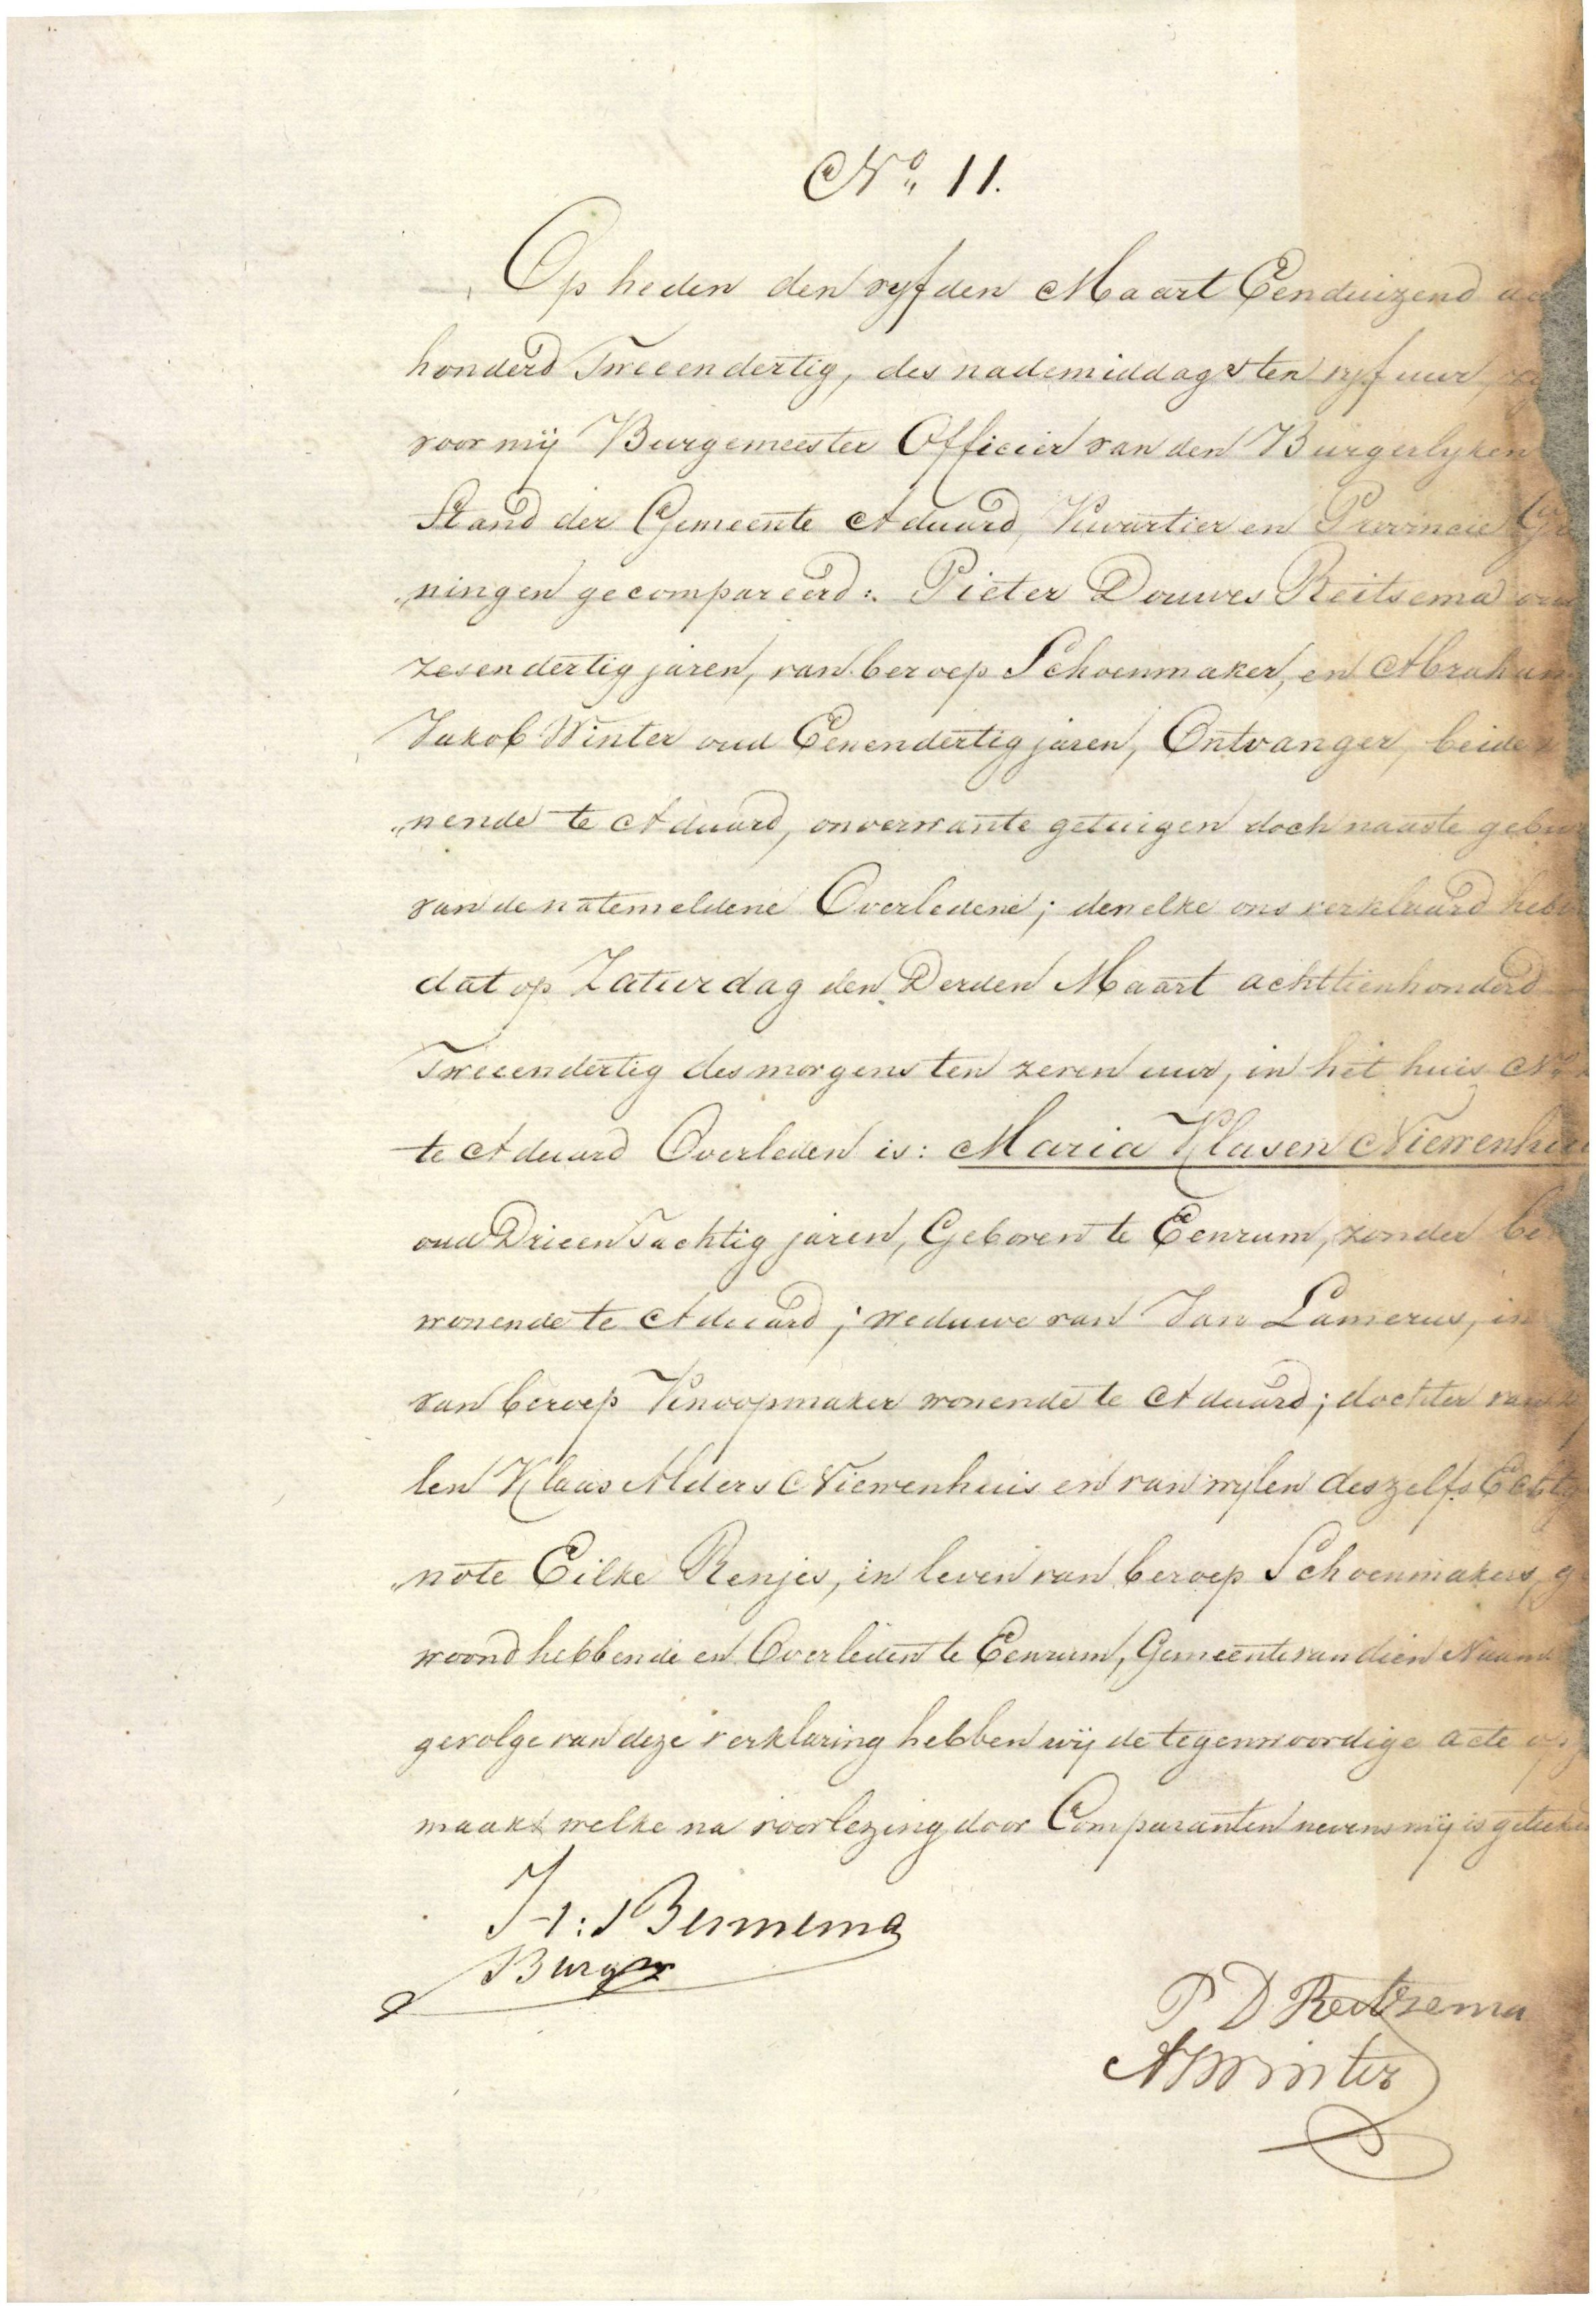 No. 11.
Op heden den vyfden Maart Eenduizend
honderd Tweeendertig, des nademiddags ten vyf uur,
voor mij Burgemeester Officier van den Burgerlyken
Stand der Gemeente Aduard, Kwartier en Provincie Gr
„ningen gecompareerd: Pieter Douwes Reitsema
zesendertig jaren, van beroep Schoenmaker, en Abraham
Jakob Winter oud Eenendertig jaren, Ontvanger, beide
„nende te Aduard, onverwante getuigen doch naaste gebur
van de natemeldene Overledene; dewelke ons verklaard hebb
dat op Zaturdag den Derden Maart achttienhonderd
Tweeendertig des morgens ten zeven uur, in het huis No
te Aduard Overleden is: Maria Klasen Niewenhui
oud Drieen tachtig jaren, Geboren te Eenrum, zonder be
wonende te Aduard; weduwe van Jan Lamerus, in
van beroep Knoopmaker wonende te Aduard; dochter van
len Klaas Alders Niewenhuis en van wylen deszelfs Echtg
„note Eilke Renjes, in leven van beroep Schoenmakers, g
woond hebbende en Overleden te Eenrum, Gemeente van dien Naam
gevolge van deze verklaring hebben wij de tegenwoordige acte op
maakt welke na voorlezing door Comparanten nevens mij is geteeken
Burgmr
P D Reitzema
AJWinter